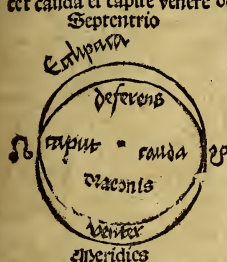 cet cauda et capite venere de
Septentrio
Ecliptica
deferens
☊ caput cauda ☋
Draconis
Venter
Meridies